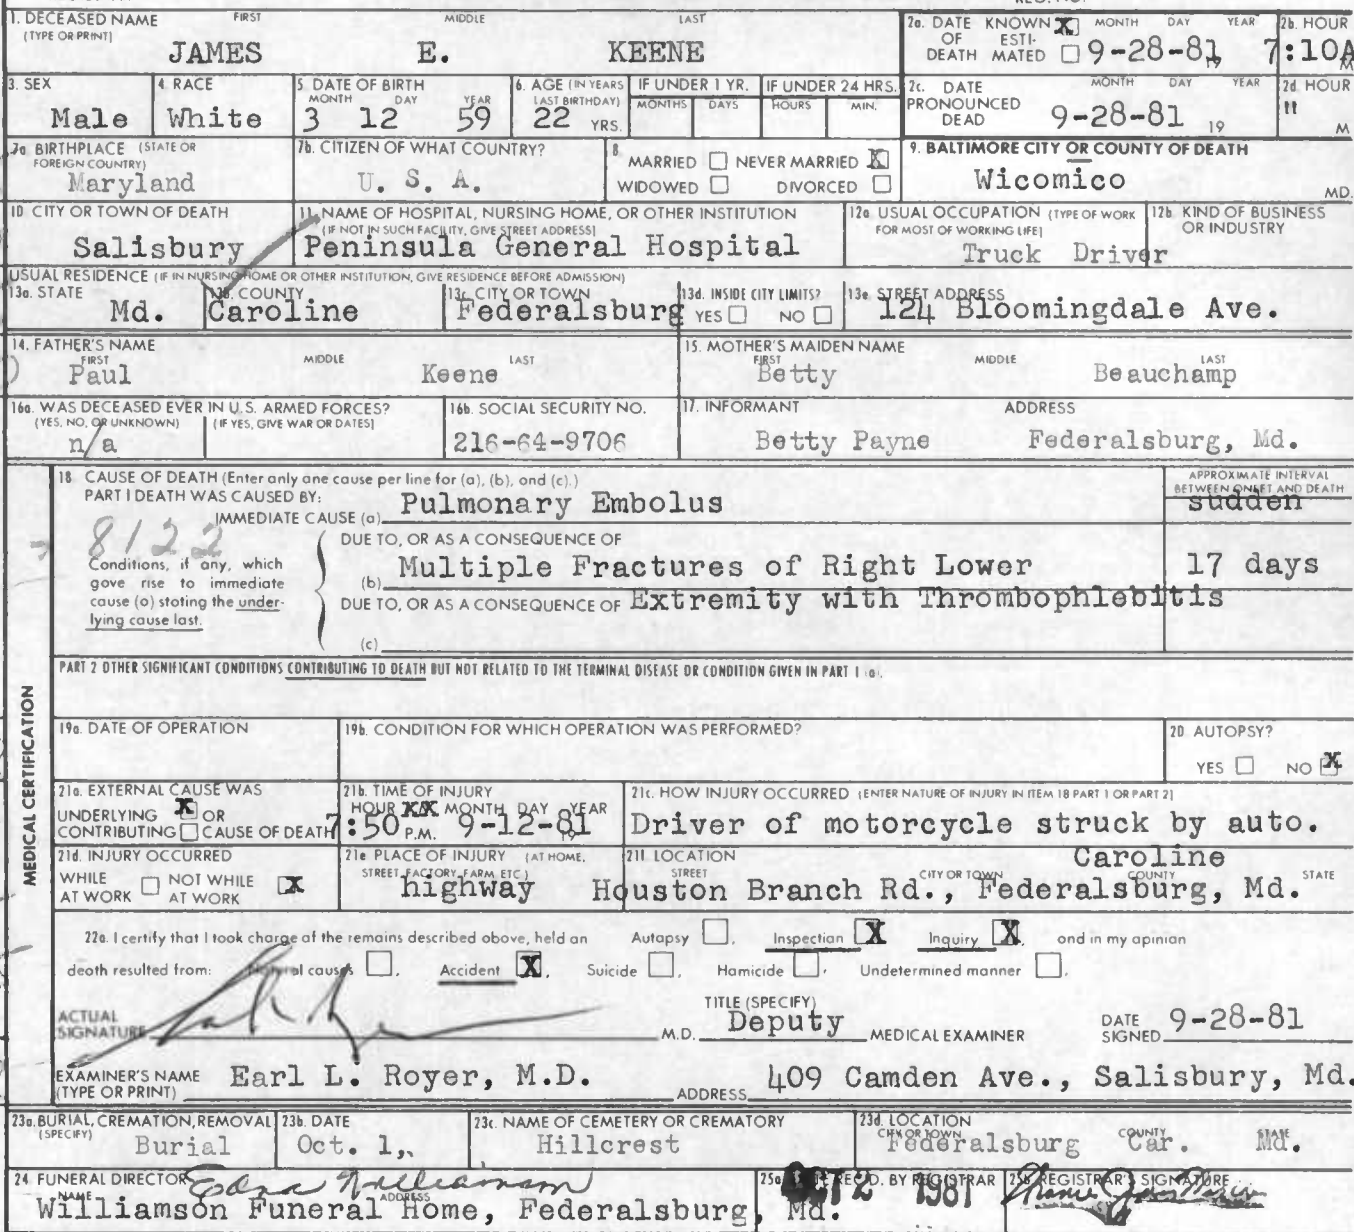 1. DECEASED NAME (TYPE OR PRINT) FIRST MIDDLE LAST
JAMES E. KEENE
2a. DATE OF DEATH KNOWN X ESTIMATED MONTH DAY YEAR 9-28-81 19
2b. HOUR 7:10A M
3. SEX Male
4. RACE White
5. DATE OF BIRTH MONTH DAY YEAR 3 12 59
6. AGE (IN YEARS LAST BIRTHDAY) 22 YRS.
IF UNDER 1 YR. MONTHS DAYS
IF UNDER 24 HRS. HOURS MIN.
2c. DATE PRONOUNCED DEAD MONTH DAY YEAR 9-28-81 19
2d HOUR " M
7a. BIRTHPLACE (STATE OR FOREIGN COUNTRY) Maryland
7b. CITIZEN OF WHAT COUNTRY? U. S. A.
8. MARRIED NEVER MARRIED X WIDOWED DIVORCED
9. BALTIMORE CITY OR COUNTY OF DEATH Wicomico MD.
10 CITY OR TOWN OF DEATH Salisbury
11. NAME OF HOSPITAL, NURSING HOME, OR OTHER INSTITUTION (IF NOT IN SUCH FACILITY, GIVE STREET ADDRESS) Peninsula General Hospital
12a USUAL OCCUPATION (TYPE OF WORK FOR MOST OF WORKING LIFE) Truck Driver
12b. KIND OF BUSINESS OR INDUSTRY
USUAL RESIDENCE (IF IN NURSING HOME OR OTHER INSTITUTION, GIVE RESIDENCE BEFORE ADMISSION)
13a. STATE Md.
13b. COUNTY Caroline
13c. CITY OR TOWN Federalsburg
13d. INSIDE CITY LIMITS? YES NO
13e. STREET ADDRESS 124 Bloomingdale Ave.
14. FATHER'S NAME FIRST MIDDLE LAST Paul Keene
15. MOTHER'S MAIDEN NAME FIRST MIDDLE LAST Betty Beauchamp
16a. WAS DECEASED EVER IN U.S. ARMED FORCES? (YES, NO, OR UNKNOWN) (IF YES, GIVE WAR OR DATES) n/a
16b. SOCIAL SECURITY NO. 216-64-9706
17. INFORMANT ADDRESS Betty Payne Federalsburg, Md.
MEDICAL CERTIFICATION
18 CAUSE OF DEATH (Enter only one cause per line for (a), (b), and (c).)
APPROXIMATE INTERVAL BETWEEN ONSET AND DEATH
PART I DEATH WAS CAUSED BY:
IMMEDIATE CAUSE (a) Pulmonary Embolus sudden
8122
DUE TO, OR AS A CONSEQUENCE OF
Conditions, if any, which gave rise to immediate cause (a) stating the underlying cause last.
(b) Multiple Fractures of Right Lower 17 days
DUE TO, OR AS A CONSEQUENCE OF Extremity with Thrombophlebitis
(c)
PART 2 OTHER SIGNIFICANT CONDITIONS CONTRIBUTING TO DEATH BUT NOT RELATED TO THE TERMINAL DISEASE OR CONDITION GIVEN IN PART I (a).
19a. DATE OF OPERATION
19b. CONDITION FOR WHICH OPERATION WAS PERFORMED?
20. AUTOPSY? YES NO X
21a. EXTERNAL CAUSE WAS UNDERLYING X OR CONTRIBUTING CAUSE OF DEATH
21b. TIME OF INJURY HOUR XX MONTH DAY YEAR 7:50 P.M. 9-12-81 19
21c. HOW INJURY OCCURRED (ENTER NATURE OF INJURY IN ITEM 18 PART 1 OR PART 2) Driver of motorcycle struck by auto.
21d. INJURY OCCURRED WHILE AT WORK NOT WHILE AT WORK X
21e PLACE OF INJURY (AT HOME, STREET, FACTORY, FARM, ETC.) highway
21f. LOCATION STREET CITY OR TOWN COUNTY STATE
Caroline
Houston Branch Rd., Federalsburg, Md.
22a. I certify that I took charge of the remains described above, held an Autopsy , Inspection X , Inquiry X , and in my opinion
death resulted from: Natural causes , Accident X , Suicide , Homicide , Undetermined manner .
ACTUAL SIGNATURE M.D. TITLE (SPECIFY) Deputy MEDICAL EXAMINER DATE SIGNED 9-28-81
EXAMINER'S NAME (TYPE OR PRINT) Earl L. Royer, M.D. ADDRESS 409 Camden Ave., Salisbury, Md.
23a. BURIAL, CREMATION, REMOVAL (SPECIFY) Burial
23b. DATE Oct. 1,
23c. NAME OF CEMETERY OR CREMATORY Hillcrest
23d. LOCATION CITY OR TOWN COUNTY STATE Federalsburg Car. Md.
24 FUNERAL DIRECTOR Edna Williamson
NAME ADDRESS Williamson Funeral Home, Federalsburg, Md.
25a. REC'D. BY REGISTRAR OCT 2 1981
25b REGISTRAR'S SIGNATURE